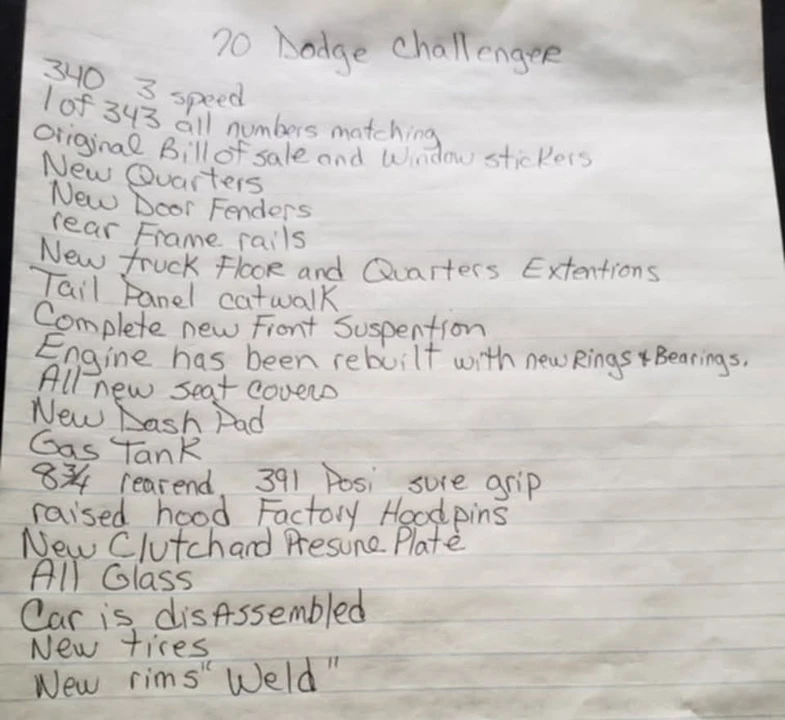 70 Dodge Challenger
340 3 speed
1 of 343 all numbers matching
original Bill of sale and Window stickers
New Quarters
New Door Fenders
rear Frame rails
New truck Floor and Quarters Extentions
Tail Panel catwalk
Complete new Front Suspention
Engine has been rebuilt with new Rings & Bearings.
All new seat covers
New Dash Pad
Gas Tank
8 3/4 rearend 391 Posi sure grip
raised hood Factory Hoodpins
New Clutch and Presure Plate
All Glass
Car is disAssembled
New tires
New rims "Weld"